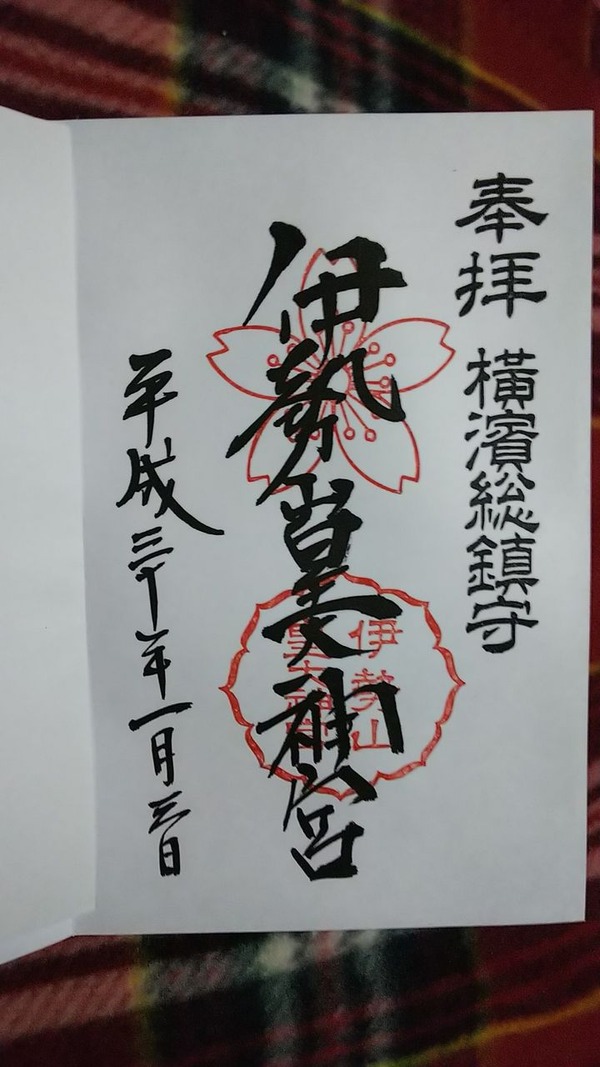 奉拝
横濱総鎮守
伊勢山皇大神宮
伊勢山
皇大神宮
平成三十年一月三日